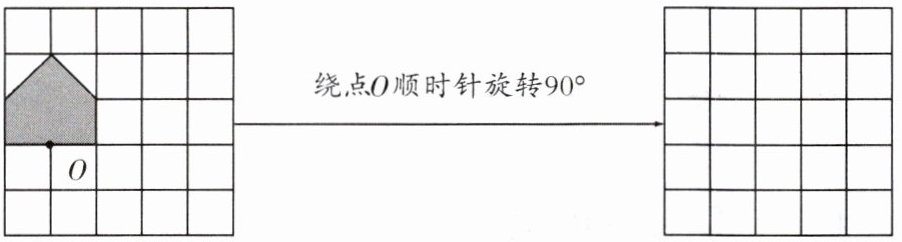 绕点O顺时针旋转90°
O